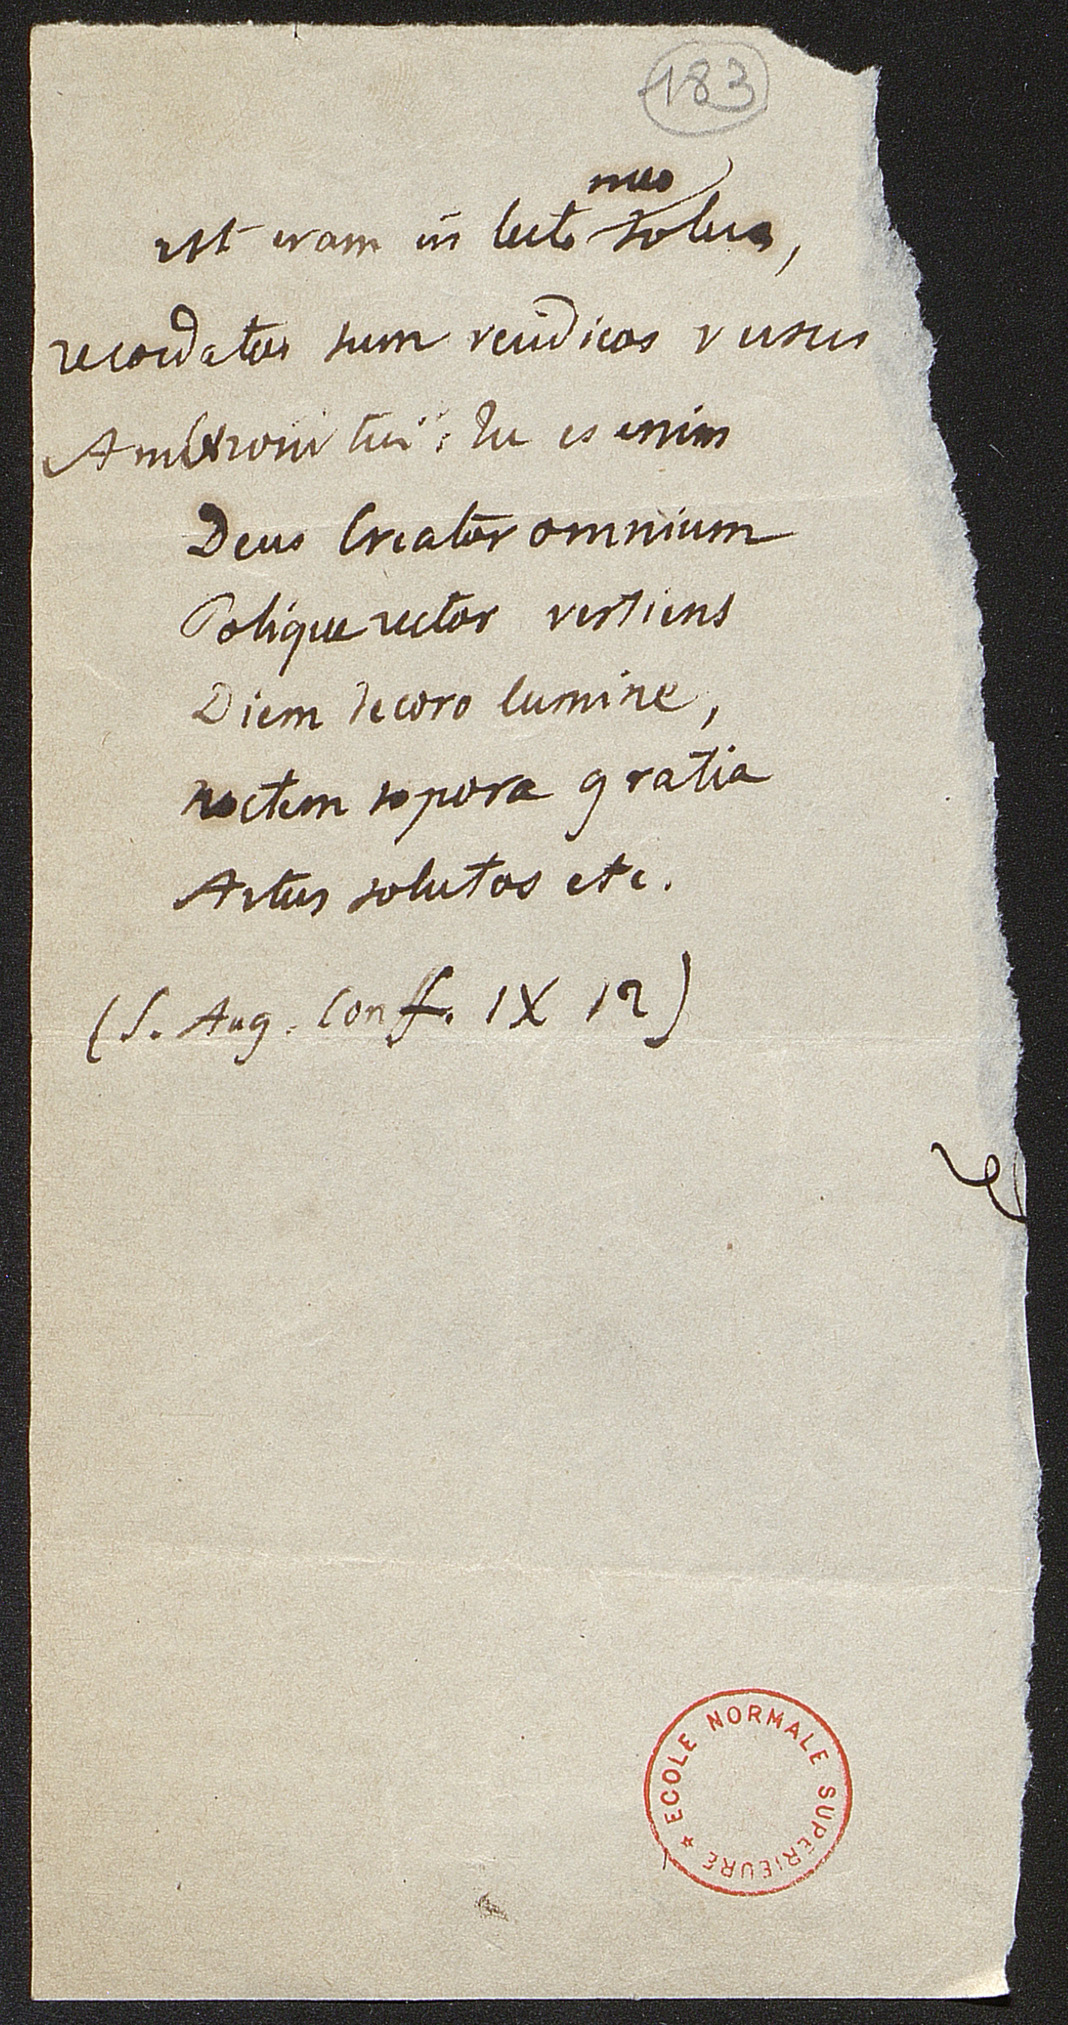 183
meo
ut eram in lecto solus,
recordatus sum veridicos versus
Ambrosii tui : tu es enim
Deus Creator omnium
Polique rector vestiens
Diem decoro lumine,
noctem sopora gratia
Artus solutos etc.
(S. Aug. Conf. IX 12)
ECOLE NORMALE SUPERIEURE